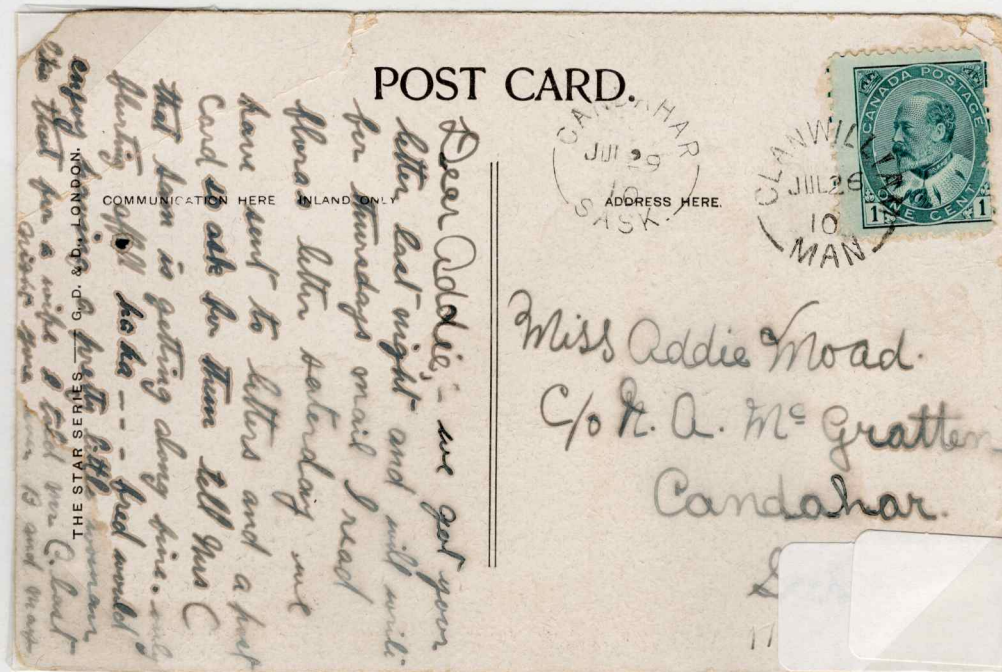 POST CARD.
COMMUNICATION HERE INLAND ONLY
ADDRESS HERE.
THE STAR SERIES — G. D. & D., LONDON.
CANDAHAR
JUL 29
10
SASK.
CLANWILLIAM
JUL 26
10
MAN
CANADA POSTAGE
1 ONE CENT 1
Dear Addie - we got your
letter last night and will write
for thursdays mail I read
floras letter saterday we
have sent to letters and a post
Card so ask for them tell Mrs C
that Sam is getting along fine. only
flirting haha - - - fred would
enjoy having a pretty little woman
like that for a wife I
and
Miss Addie Moad.
C/o N. A. Mc Gratten
Candahar.
17